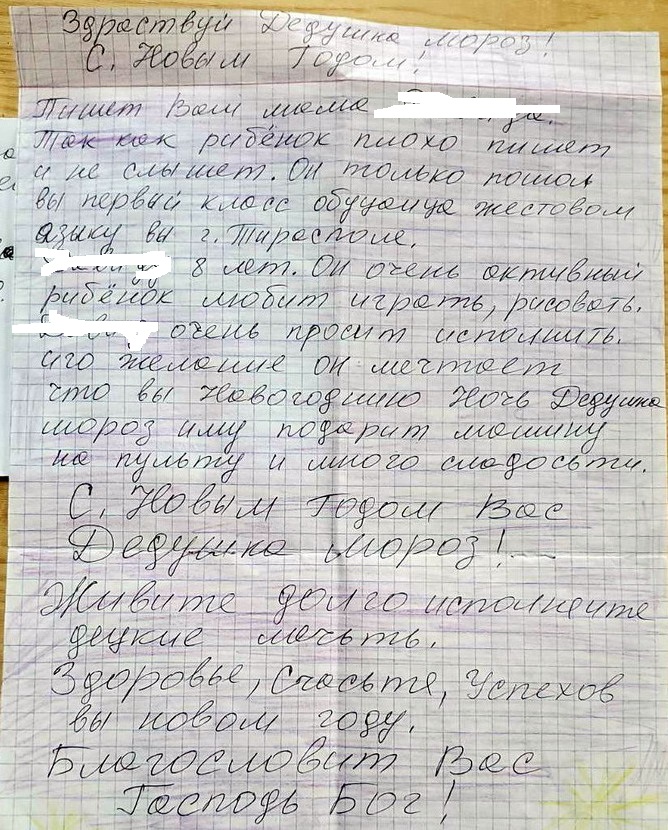 Здраствуй Дедушка мороз!
С. Новым Годом!
Пишет Вам мама
Так как рибёнок плохо пишет
и не слышет. Он только пошол
вы первый класс обуцаица жестовом
язику вы г. Тирасполе.
8 лет. Он очень активный
рибёнок любит играть, рисовать.
очень просит исполнить.
иго желание он мечтает
что вы Новогоднию Ночь Дедушка
мороз иму подарит машину
на пульту и много сладосьти.
С. Новым Годом Вас
Дедушка мороз!
Живите долго исполнейте
децкие мечьть.
Здоровье, Счасьте, Успехов
вы новом году.
Благословит Вас
Гасподь Бог!